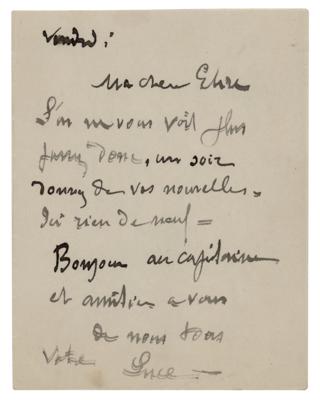 Vendredi
Ma chere Elise
On ne vous voit plus
donc, un soir
donnez de vos nouvelles =
Ici rien de neuf =
Bonjour au capitaine
et amitiés a vous
de nous tous
Votre Luce —